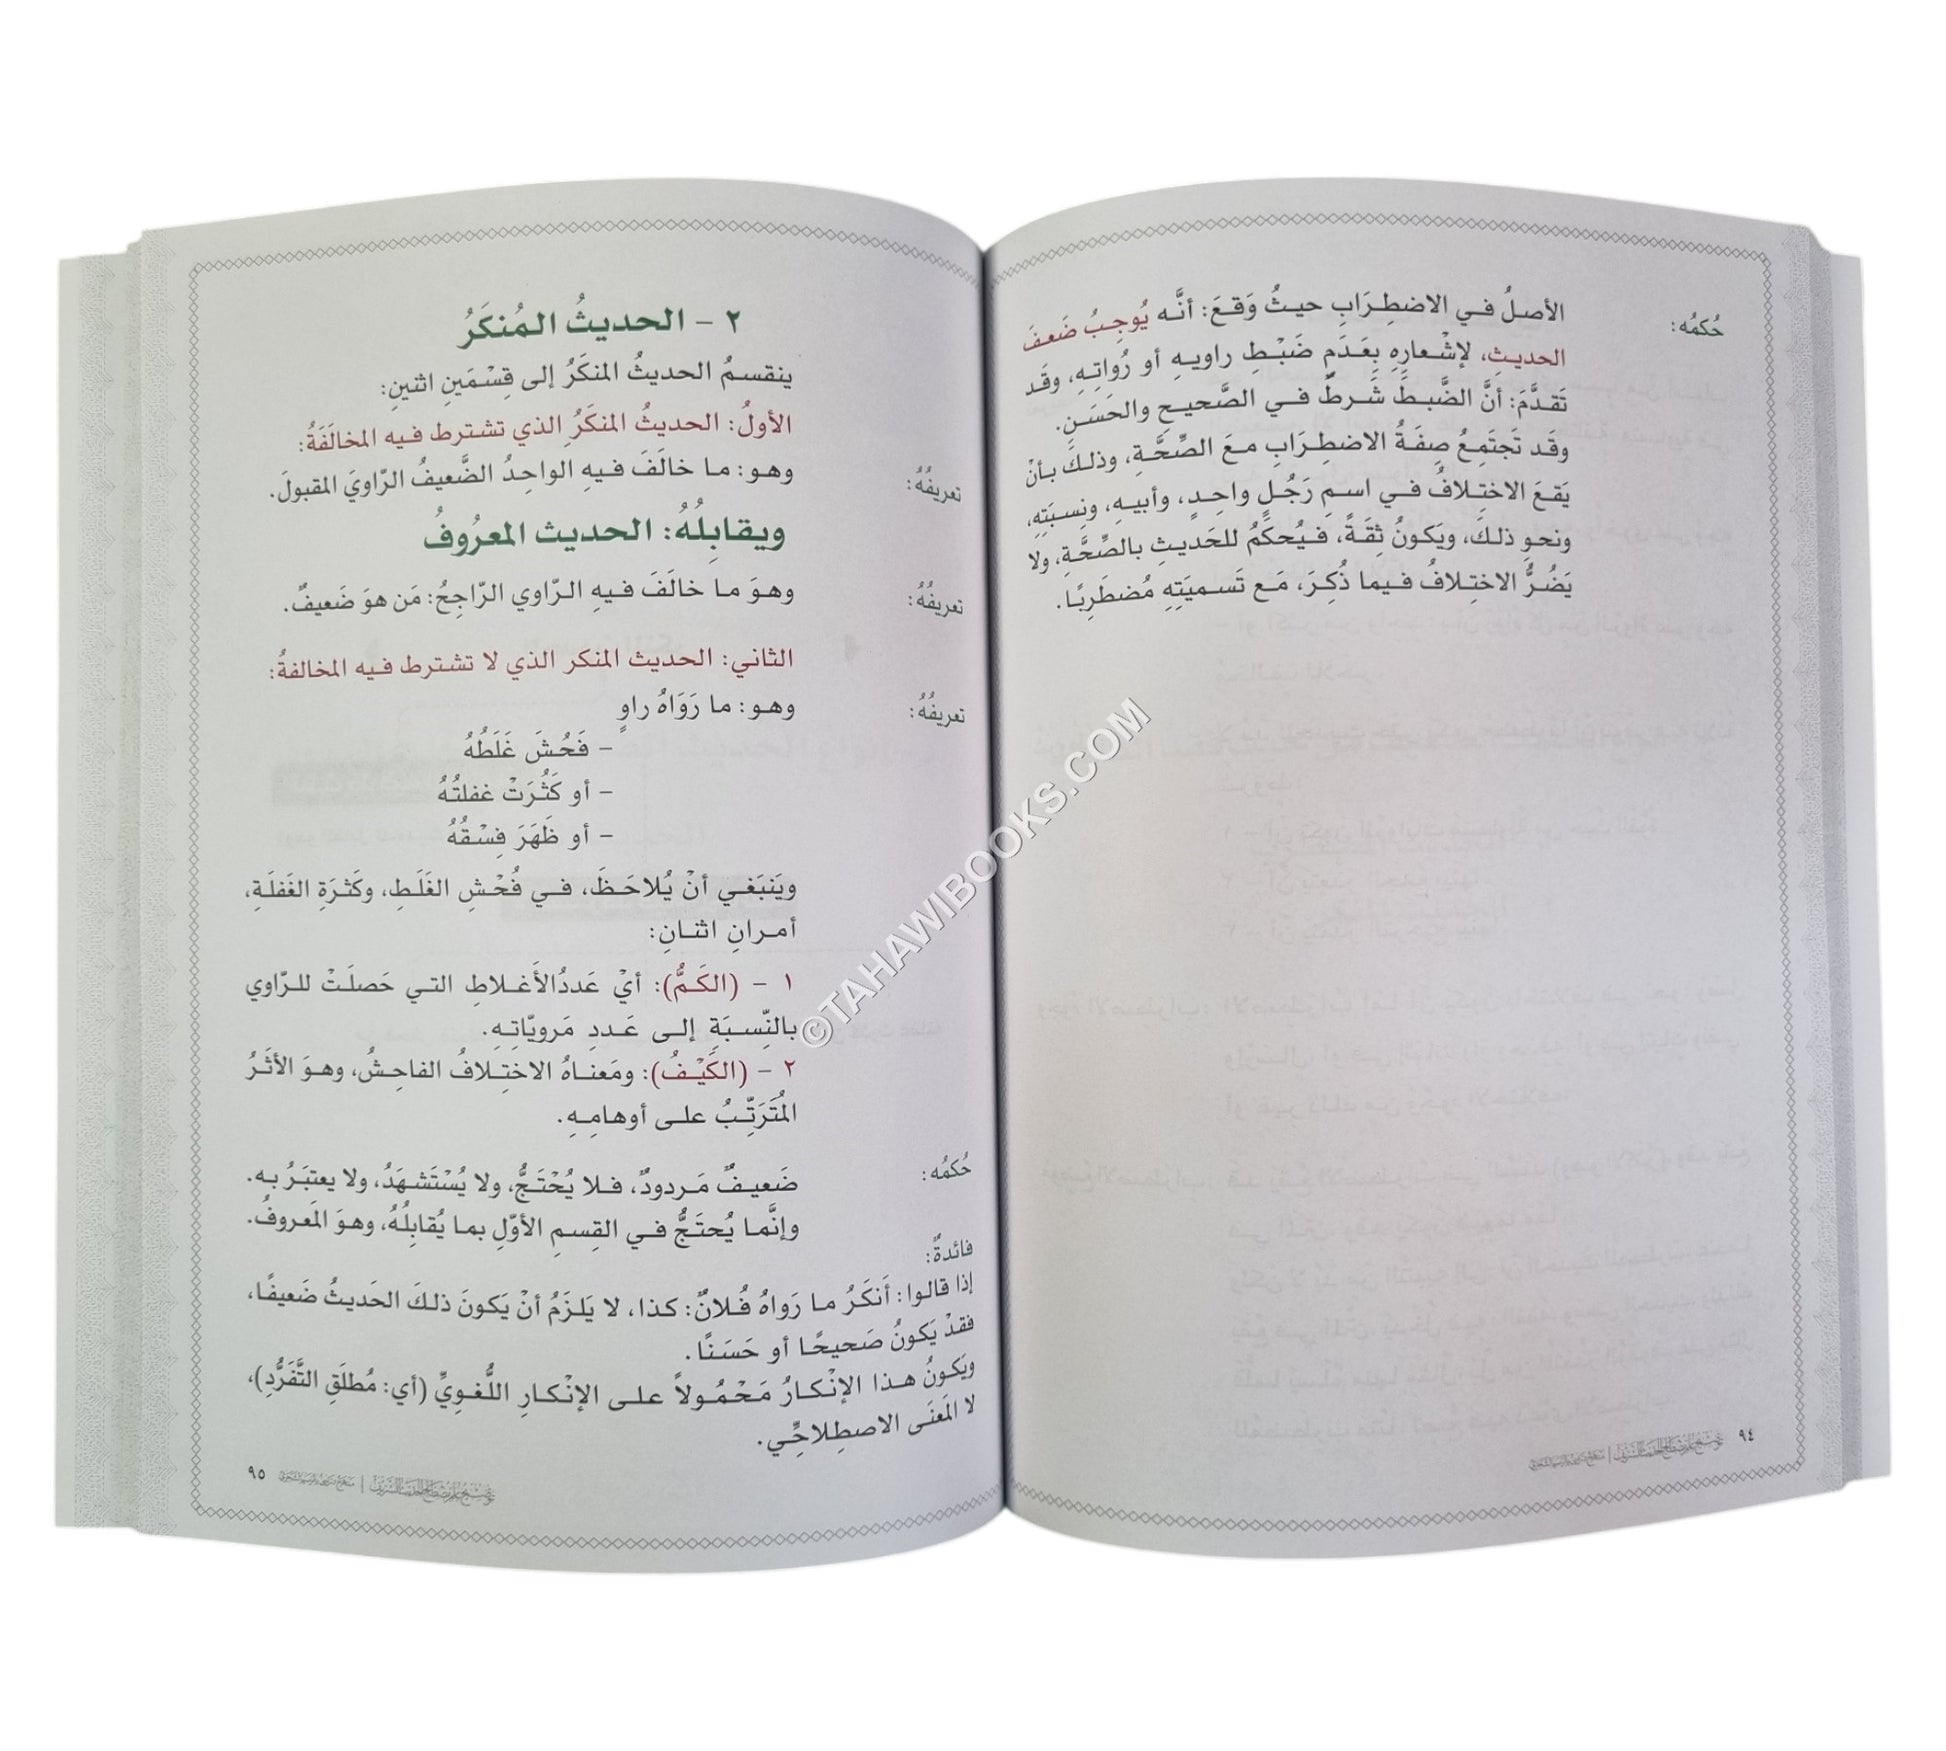 حُكمُه:
الأصلُ في الاضطِرَابِ حيثُ وَقعَ: أنَّه يُوجِبُ ضَعفَ
الحديثِ، لإشْعارِهِ بِعَدَمِ ضَبْطِ راويهِ أو رُواتِهِ، وقَد
تَقدَّمَ: أنَّ الضَّبطَ شَرطٌ في الصَّحيحِ والحَسَنِ.
وقَد تَجتَمِعُ صِفَةُ الاضطِرَابِ معَ الصِّحَّةِ، وذلكَ بأنْ
يَقعَ الاختِلافُ في اسمِ رَجُلٍ واحِدٍ، وأبيهِ، ونِسبَتِهِ،
ونحوِ ذلكَ، ويَكونُ ثِقَةً، فيُحكَمُ للحَديثِ بالصِّحَّةِ، ولا
يَضُرُّ الاختِلافُ فيما ذُكِرَ، مَع تَسميَتِهِ مُضطَرِبًا.
٩٤
٢ - الحديثُ المُنكَرُ
ينقسمُ الحديثُ المنكَرُ إلى قِسْمَينِ اثنينِ:
الأولُ: الحديثُ المنكَرُ الذي تشترط فيه المخالَفَةُ:
تعريفُهُ:
وهو: ما خالَفَ فيهِ الواحِدُ الضَّعيفُ الرّاويَ المقبولَ.
ويقابِلُهُ: الحديث المعرُوفُ
تعريفُهُ:
وهوَ ما خالَفَ فيهِ الرّاوي الرّاجِحُ: مَن هوَ ضَعيفٌ.
الثاني: الحديث المنكر الذي لا تشترط فيه المخالفةُ:
تعريفُهُ:
وهو: ما رَوَاهُ راوٍ
- فَحُشَ غَلَطُهُ
- أو كَثُرَتْ غفلتُهُ
- أو ظَهَرَ فِسْقُهُ
ويَنبَغي أنْ يُلاحَظَ، في فُحْشِ الغَلَطِ، وكَثرَةِ الغَفلَةِ،
أمرانِ اثنانِ:
١ - (الكَمُّ): أيْ عَددُالأَغلاطِ التي حَصلَتْ للرّاوي
بالنِّسبَةِ إلى عَددِ مَرويّاتِهِ.
٢ - (الكَيْفُ): ومَعناهُ الاختِلافُ الفاحِشُ، وهوَ الأثَرُ
المُتَرَتِّبُ على أوهامِهِ.
حُكمُه:
ضَعيفٌ مَردودٌ، فلا يُحْتَجُّ، ولا يُسْتَشهَدُ، ولا يعتبَرُ بهِ.
وإنَّما يُحتَجُّ في القِسمِ الأوّلِ بما يُقابِلُهُ، وهوَ المَعروفُ.
فائدةٌ:
إذا قالوا: أَنكَرُ ما رَواهُ فُلانٌ: كذا، لا يَلزَمُ أنْ يَكونَ ذلكَ الحَديثُ ضَعيفًا،
فقدْ يَكونُ صَحيحًا أو حَسَنًا.
ويَكونُ هذا الإنْكارُ مَحْمُولاً على الإنْكارِ اللُّغَويِّ (أي: مُطلَقِ التَّفَرُّدِ)،
لا المَعنَى الاصطِلاحِّي.
٩٥
©TAHAWIBOOKS.COM